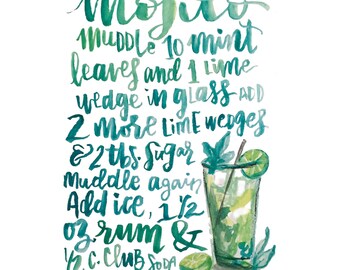 mojito
muddle 10 mint
leaves and 1 lime
wedge in glass ADD
2 more Lime wedges
& 2 tbs. sugar
muddle again
Add ice, 1 1/2
oz. rum &
1/2 c. club soda